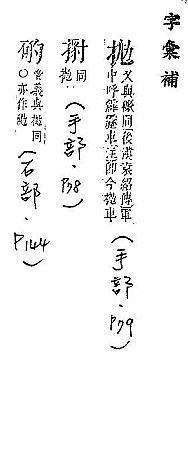 字彙補
拋
又與礮同後漢袁紹傳軍
中呼霹靂車注即今拋車
(手部.P79)
同
拋
(手部.P38)
音義與拋同
○亦作
(石部.P144)